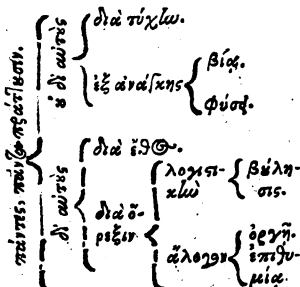 πάντες, πάντα πράττουσιν.
οὐ δι' αὑτοὺς
διὰ τύχην.
ἐξ ἀνάγκης
βίᾳ.
φύσει.
δι' αὑτοὺς
διὰ ἔθος.
διὰ ὄ-
ρεξιν
λογιστι-
κὴν
βούλη-
σις.
ἄλογον
ὀργή.
ἐπιθυ-
μία.